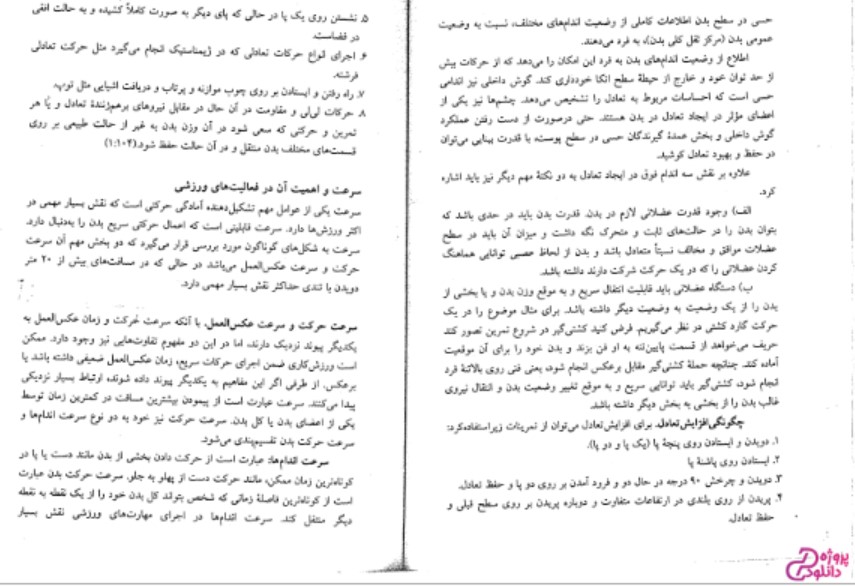 حسی در سطح بدن اطلاعات کاملی از وضعیت اندام‌های مختلف، نسبت به وضعیت
عمومی بدن (مرکز ثقل کلی بدن)، به فرد می‌دهند.
اطلاع از وضعیت اندام‌های بدن به فرد این امکان را می‌دهد که از حرکات بیش
از حد توان خود و خارج از حیطهٔ سطح اتکا خودداری کند. گوش داخلی نیز اندامی
حسی است که احساسات مربوط به تعادل را تشخیص می‌دهد. چشم‌ها نیز یکی از
اعضای مؤثر در ایجاد تعادل در بدن هستند. حتی درصورت از دست رفتن عملکرد
گوش داخلی و بخش عمدهٔ گیرندگان حسی در سطح پوست، با قدرت بینایی می‌توان
در حفظ و بهبود تعادل کوشید.
علاوه بر نقش سه اندام فوق در ایجاد تعادل به دو نکتهٔ مهم دیگر نیز باید اشاره
کرد.
الف) وجود قدرت عضلانی لازم در بدن. قدرت بدن باید در حدی باشد که
بتوان بدن را در حالت‌های ثابت و متحرک نگه داشت و میزان آن باید در سطح
عضلات موافق و مخالف نسبتاً متعادل باشد و بدن از لحاظ عصبی توانایی هماهنگ
کردن عضلاتی را که در یک حرکت شرکت دارند داشته باشد.
ب) دستگاه عضلانی باید قابلیت انتقال سریع و به موقع وزن بدن و یا بخشی از
بدن را از یک وضعیت به وضعیت دیگر داشته باشد. برای مثال موضوع را در یک
حرکت گارد کشتی در نظر می‌گیریم. فرض کنید کشتی‌گیر در شروع تمرین تصور کند
حریف می‌خواهد از قسمت پایین‌تنه به او فن بزند و بدن خود را برای آن موقعیت
آماده کند. چنانچه حملهٔ کشتی‌گیر مقابل برعکس انجام شود، یعنی فنی روی بالاتنهٔ فرد
انجام شود، کشتی‌گیر باید توانایی سریع و به موقع تغییر وضعیت بدن و انتقال نیروی
غالب بدن را از بخشی به بخش دیگر داشته باشد.
چگونگی افزایش تعادل. برای افزایش تعادل می‌توان از تمرینات زیر استفاده کرد:
۱. دویدن و ایستادن روی پنجهٔ پا (یک پا و دو پا).
۲. ایستادن روی پاشنهٔ پا
۳. دویدن و چرخش ۹۰ درجه در حال دو و فرود آمدن بر روی دو پا و حفظ تعادل.
۴. پریدن از روی بلندی در ارتفاعات متفاوت و دوباره پریدن بر روی سطح قبلی و
حفظ تعادل.
۵. نشستن روی یک پا در حالی که پای دیگر به صورت کاملاً کشیده و به حالت افقی
در فضاست.
۶. اجرای انواع حرکات تعادلی که در ژیمناستیک انجام می‌گیرد مثل حرکت تعادلی
فرشته.
۷. راه رفتن و ایستادن بر روی چوب موازنه و پرتاب و دریافت اشیایی مثل توپ.
۸. حرکات لی‌لی و مقاومت در آن حال در مقابل نیروهای برهم‌زنندهٔ تعادل و یا هر
تمرین و حرکتی که سعی شود در آن وزن بدن به غیر از حالت طبیعی بر روی
قسمت‌های مختلف بدن منتقل و در آن حالت حفظ شود.(۱:۱۰۴)
سرعت و اهمیت آن در فعالیت‌های ورزشی
سرعت یکی از عوامل مهم تشکیل‌دهنده آمادگی حرکتی است که نقش بسیار مهمی در
اکثر ورزش‌ها دارد. سرعت قابلیتی است که اعمال حرکتی سریع بدن را به‌دنبال دارد.
سرعت به شکل‌های گوناگون مورد بررسی قرار می‌گیرد که دو بخش مهم آن سرعت
حرکت و سرعت عکس‌العمل می‌باشد در حالی که در مسافت‌های بیش از ۲۰ متر
دویدن با تندی حداکثر نقش بسیار مهمی دارد.
سرعت حرکت و سرعت عکس‌العمل. با آنکه سرعت حرکت و زمان عکس‌العمل به
یکدیگر پیوند نزدیک دارند، اما در این دو مفهوم تفاوت‌هایی نیز وجود دارد. ممکن
است ورزش‌کاری ضمن اجرای حرکات سریع، زمان عکس‌العمل ضعیفی داشته باشد یا
برعکس. از طرفی اگر این مفاهیم به یکدیگر پیوند داده شوند، ارتباط بسیار نزدیکی
پیدا می‌کنند. سرعت عبارت است از پیمودن بیشترین مسافت در کمترین زمان توسط
یکی از اعضای بدن یا کل بدن. سرعت حرکت نیز خود به دو نوع سرعت اندام‌ها و
سرعت حرکت بدن تقسیم‌بندی می‌شود.
سرعت اندام‌ها: عبارت است از حرکت دادن بخشی از بدن مانند دست یا پا در
کوتاه‌ترین زمان ممکن، مانند حرکت دست از پهلو به جلو. سرعت حرکت بدن عبارت
است از کوتاه‌ترین فاصلهٔ زمانی که شخص بتواند کل بدن خود را از یک نقطه به نقطه
دیگر منتقل کند. سرعت اندام‌ها در اجرای مهارت‌های ورزشی نقش بسیار
پروژه
دانلود